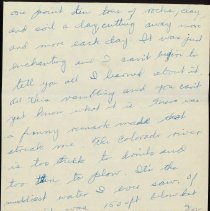 one point ten tons of rocks, clay
and soil a day cutting away more
and more each day. It was just
enchanting and I can't begin to
tell you all I learned about it.
All this rambling and you can't
yet know what it is. There was
a funny remark made that
struck me. The Colorado river
is too thick to drink and
too thin to plow. It's the
muddiest water I ever saw. If
was 150 ft